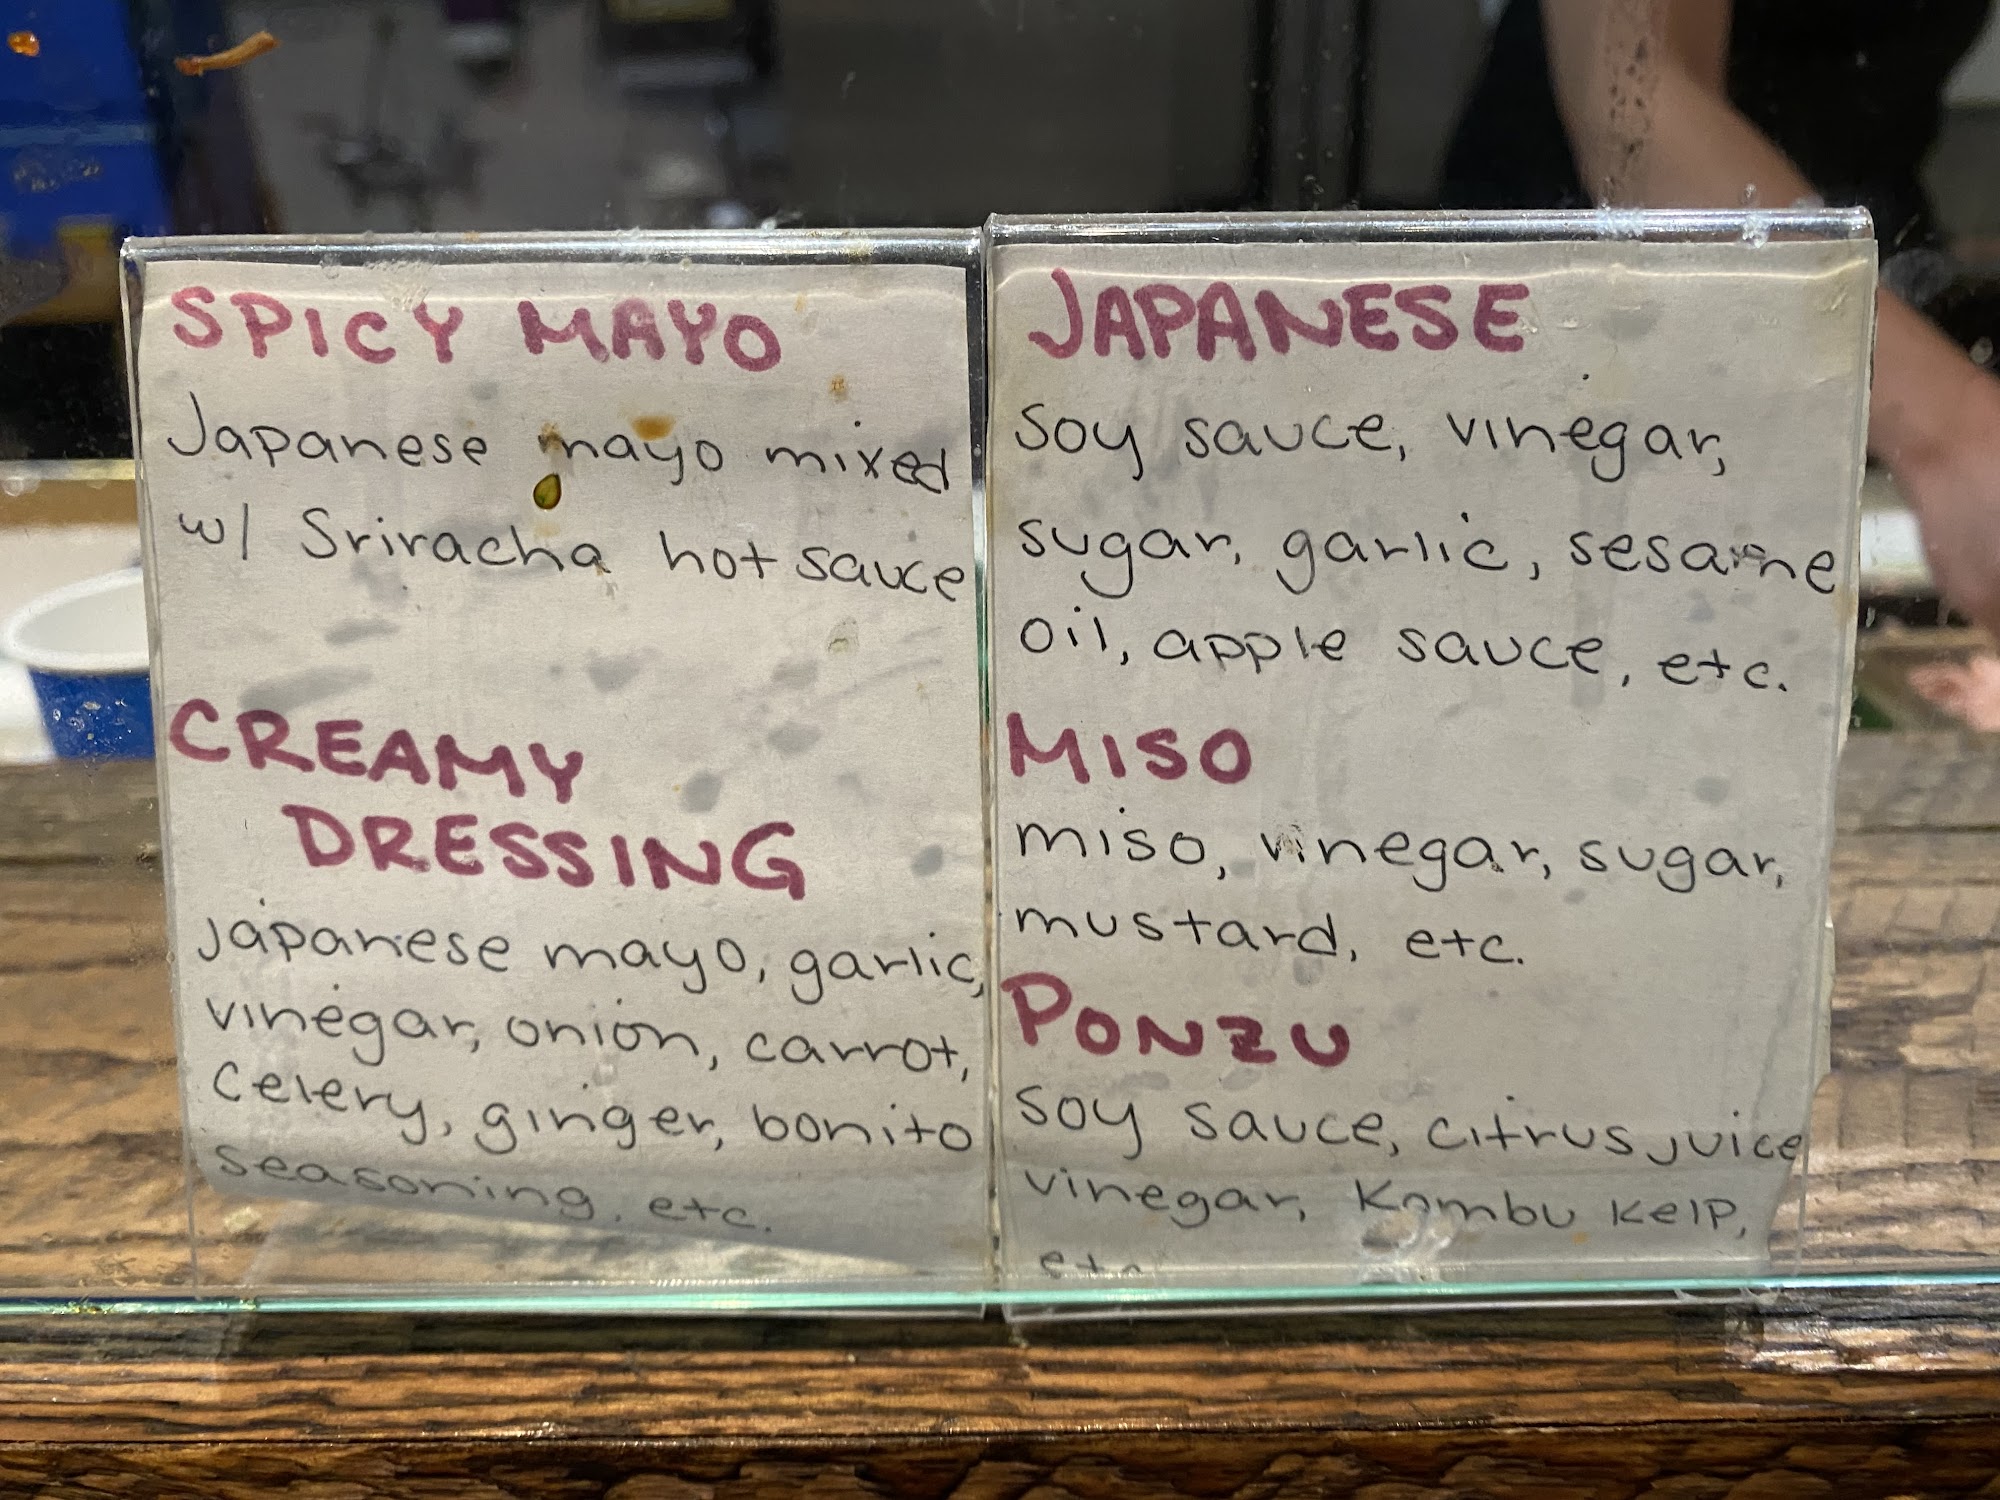 SPICY MAYO
Japanese mayo mixed
w/ Sriracha hot sauce
CREAMY
DRESSING
Japanese mayo, garlic,
vinegar, onion, carrot,
celery, ginger, bonito
seasoning, etc.
JAPANESE
soy sauce, vinegar,
sugar, garlic, sesame
oil, apple sauce, etc.
MISO
miso, vinegar, sugar,
mustard, etc.
PONZU
soy sauce, citrus juice
vinegar, Kombu Kelp,
etc